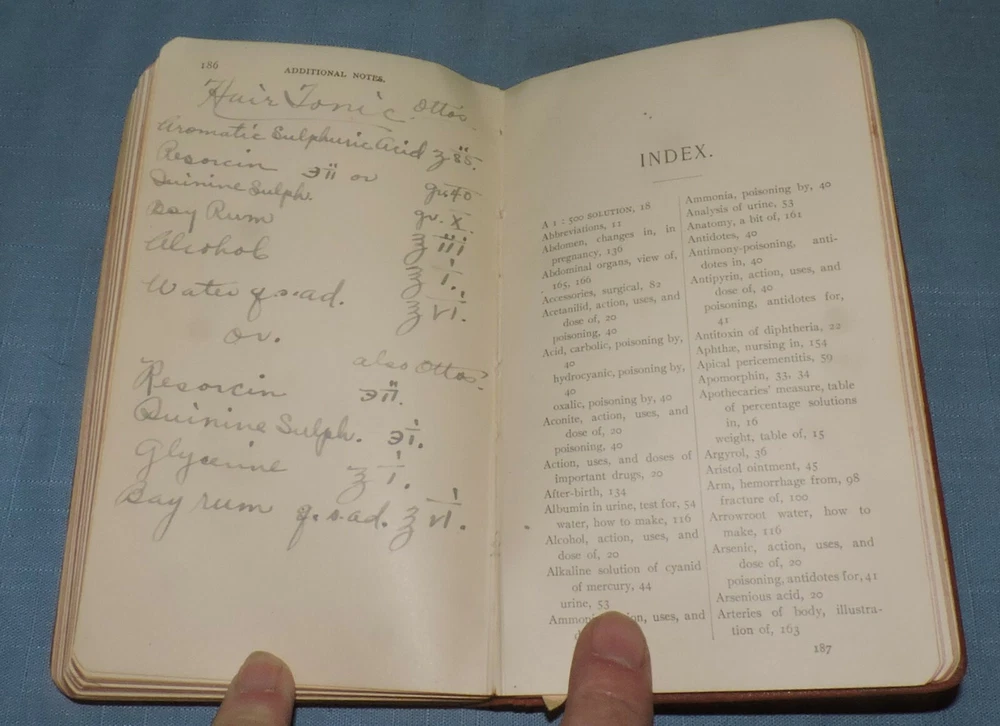 186
ADDITIONAL NOTES.
Hair Tonic. Otto's.
Aromatic Sulphuric Acid ʒ
Resorcin ℈ii or gr. 40
Quinine Sulph. gr. X.
Bay Rum ʒ iii
Alcohol ʒ i.
Water q.s.ad. ʒ vi.
or.
also Otto's.
Resorcin ℈ii.
Quinine Sulph. ℈i.
Glycerine ʒ i.
Bay rum q.s.ad. ʒ vi.
INDEX.
A 1 : 500 SOLUTION, 18
Abbreviations, 11
Abdomen, changes in, in
pregnancy, 136
Abdominal organs, view of,
165, 166
Accessories, surgical, 82
Acetanilid, action, uses, and
dose of, 20
poisoning, 40
Acid, carbolic, poisoning by,
40
hydrocyanic, poisoning by,
40
oxalic, poisoning by, 40
Aconite, action, uses, and
dose of, 20
poisoning, 40
Action, uses, and doses of
important drugs, 20
After-birth, 134
Albumin in urine, test for, 54
water, how to make, 116
Alcohol, action, uses, and
dose of, 20
Alkaline solution of cyanid
of mercury, 44
urine, 53
uses, and
Ammonia, poisoning by, 40
Analysis of urine, 53
Anatomy, a bit of, 161
Antidotes, 40
Antimony-poisoning, anti-
dotes in, 40
Antipyrin, action, uses, and
dose of, 40
poisoning, antidotes for,
41
Antitoxin of diphtheria, 22
Aphthæ, nursing in, 154
Apical pericementitis, 59
Apomorphin, 33, 34
Apothecaries' measure, table
of percentage solutions
in, 16
weight, table of, 15
Argyrol, 36
Aristol ointment, 45
Arm, hemorrhage from, 98
fracture of, 100
Arrowroot water, how to
make, 116
Arsenic, action, uses, and
dose of, 20
poisoning, antidotes for, 41
Arsenious acid, 20
Arteries of body, illustra-
tion of, 163
187